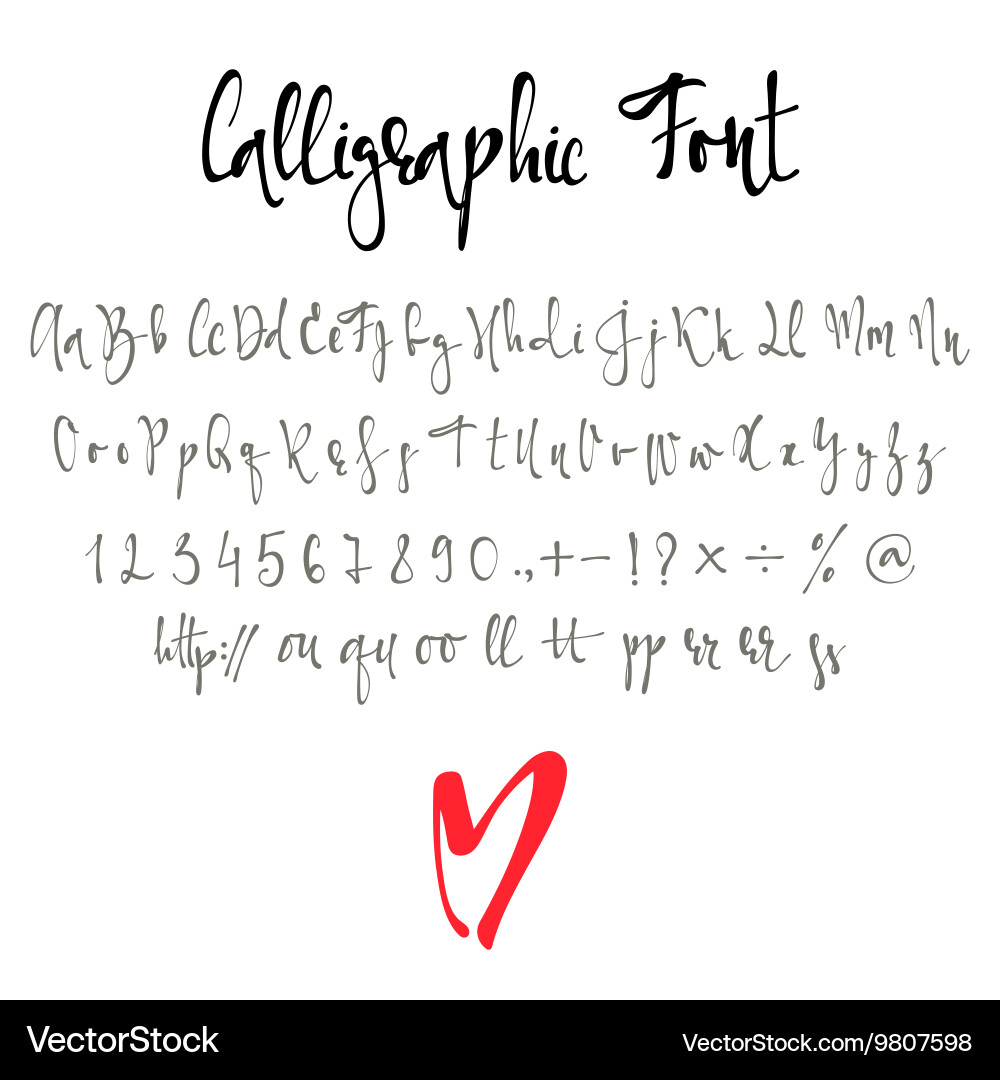 Calligraphic Font
Aa Bb Cc Dd Ee Ff Gg Hh Ii Jj Kk Ll Mm Nn
O o r o P p Q q R r S s T t U u V v W w X x Y y Z z
1 2 3 4 5 6 7 8 9 0 . , + - ! ? × ÷ % @
http:// ou qu oo ll tt pp rr er ss
VectorStock
VectorStock.com/9807598